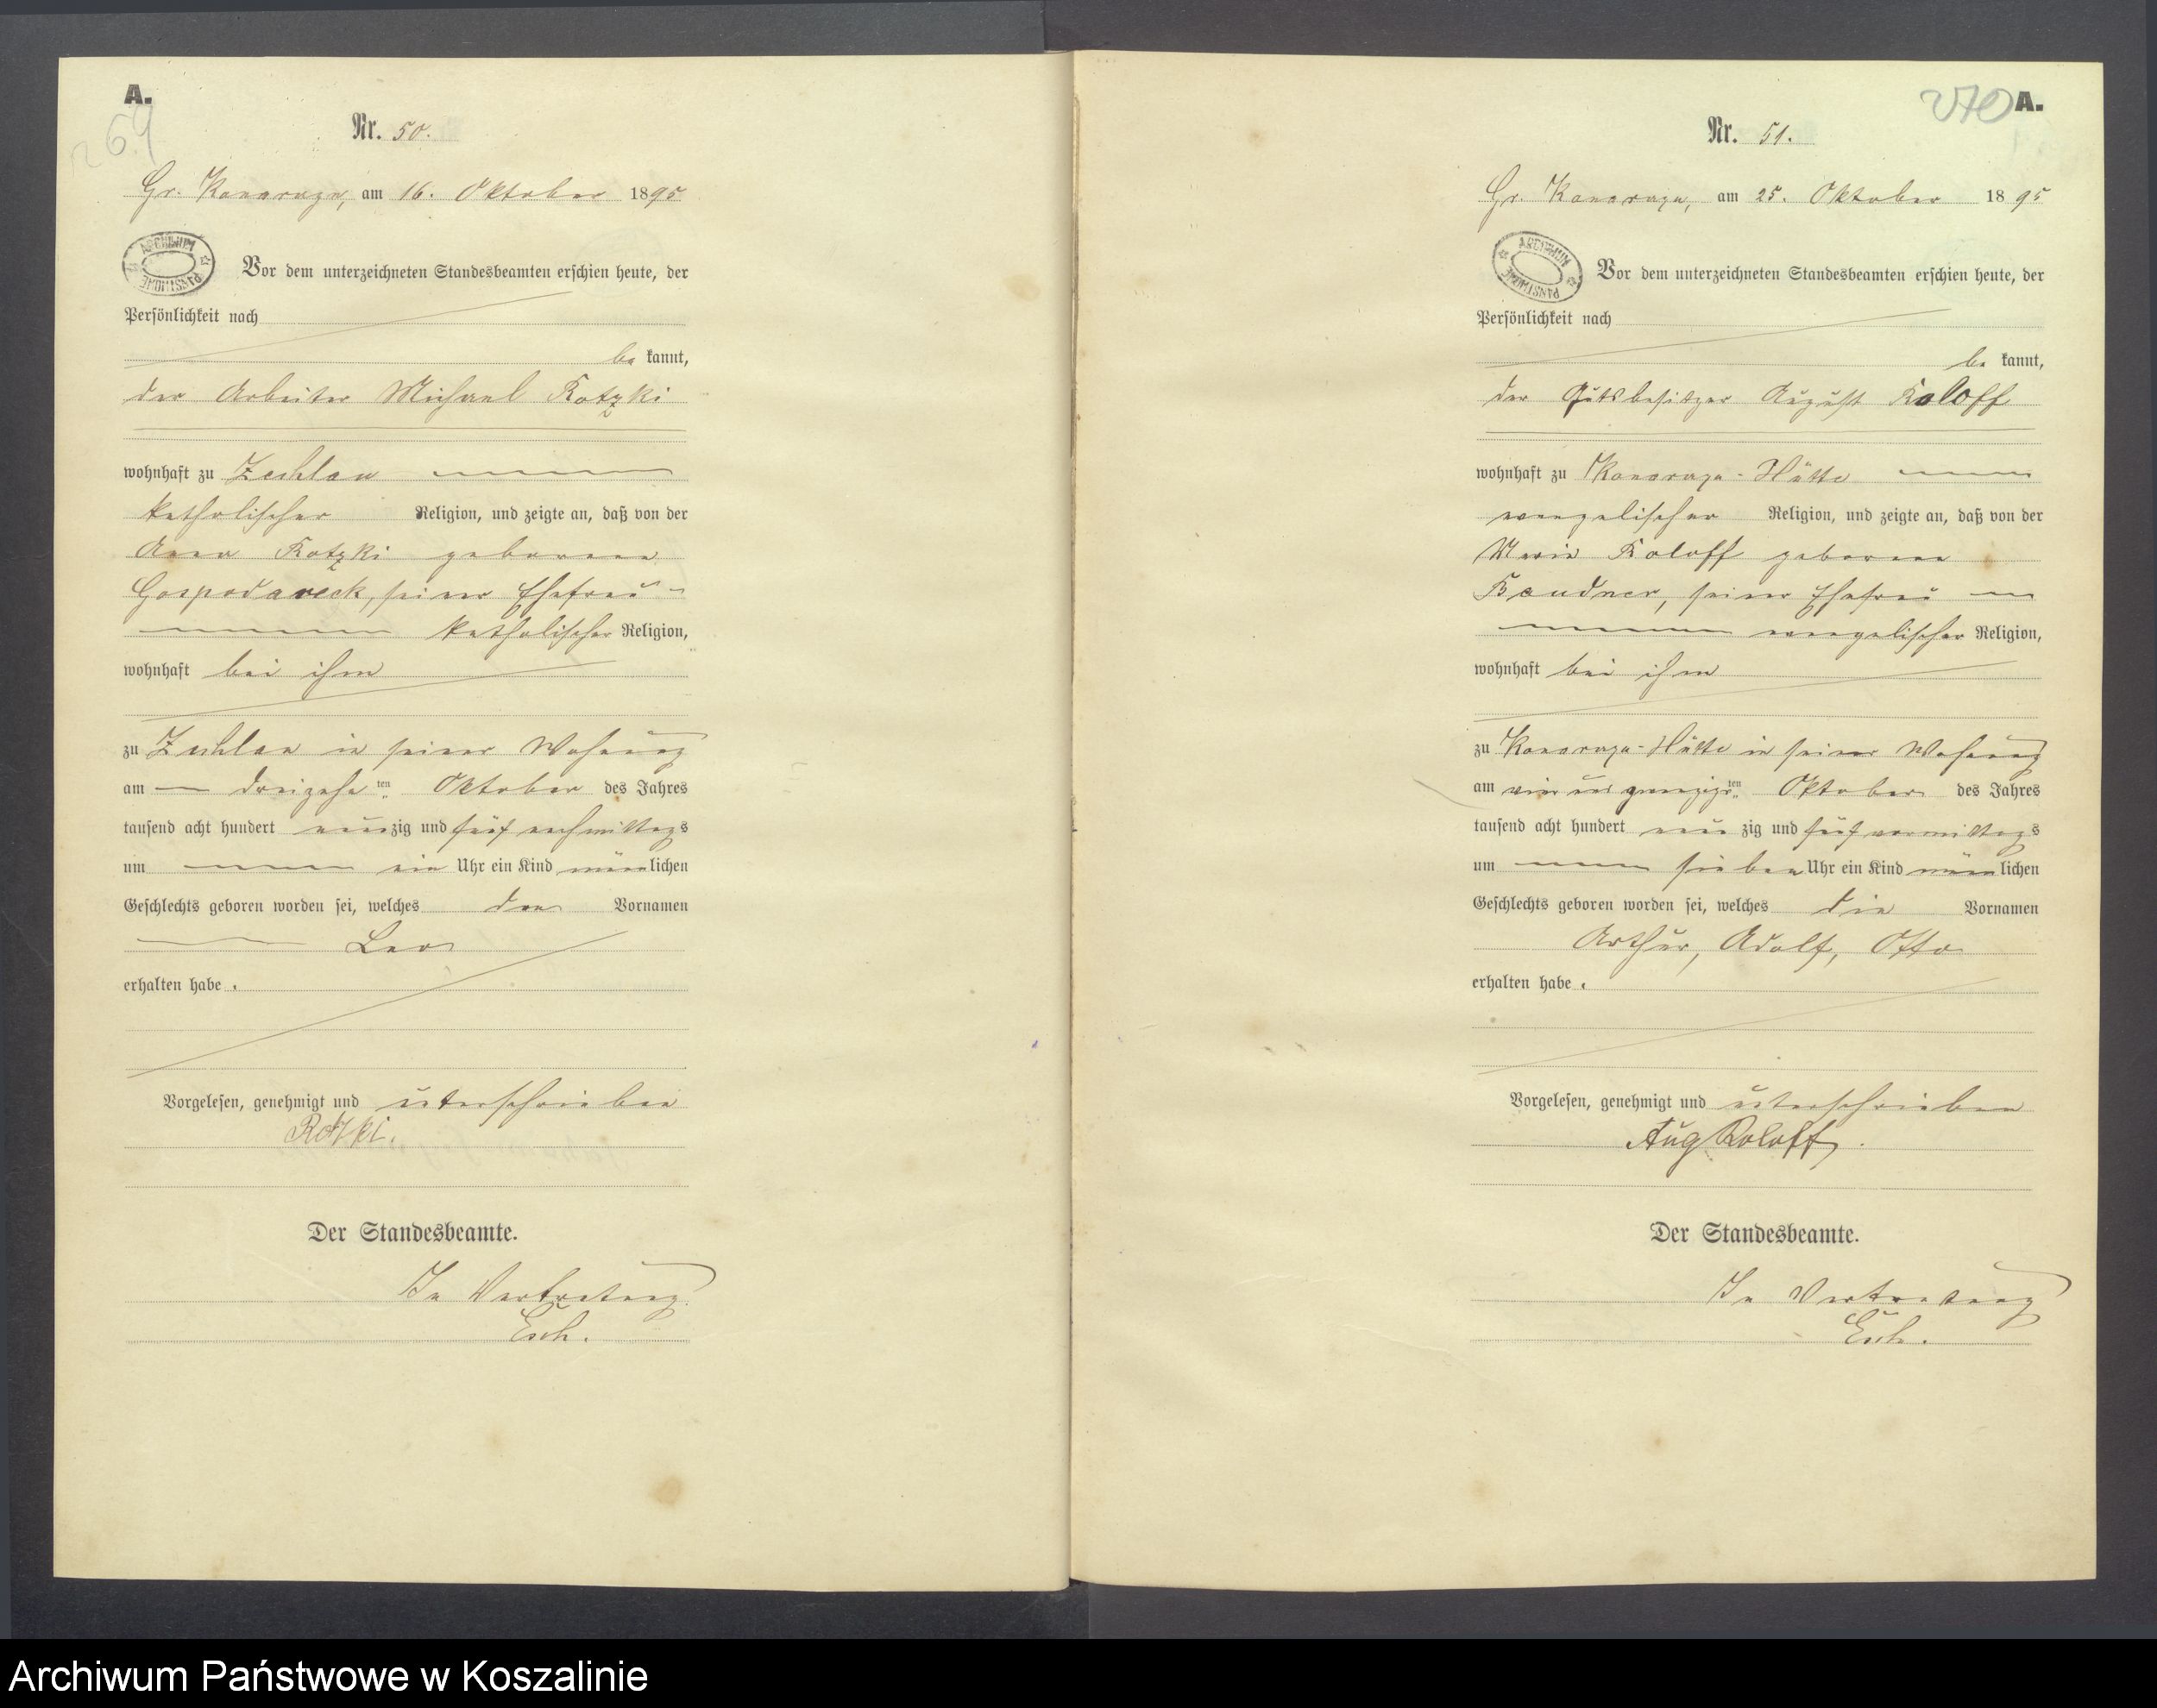 A.
269
Nr. 50.
Gr. Konarzyn, am 16. Oktober 1895
ARCHIWUM PAŃSTWOWE
Vor dem unterzeichneten Standesbeamten erschien heute, der
Persönlichkeit nach
be kannt,
der Arbeiter Michael Rotzki
wohnhaft zu Zechlau
katholischer Religion, und zeigte an, daß von der
Anna Rotzki geborene
Gospodareck, seiner Ehefrau
katholischer Religion,
wohnhaft bei ihm
zu Zechlau in seiner Wohnung
am dreizehn ten Oktober des Jahres
tausend acht hundert neunzig und fünf nachmittags
um ein Uhr ein Kind männlichen
Geschlechts geboren worden sei, welches den Vornamen
Leo
erhalten habe.
Vorgelesen, genehmigt und unterschrieben
Rotzki.
Der Standesbeamte.
In Vertretung
Esch.
270 A.
Nr. 51.
Gr. Konarzyn, am 25. Oktober 1895
ARCHIWUM PAŃSTWOWE
Vor dem unterzeichneten Standesbeamten erschien heute, der
Persönlichkeit nach
be kannt,
der Gutsbesitzer August Roloff
wohnhaft zu Konarzyn-Hütte
evangelischer Religion, und zeigte an, daß von der
Marie Roloff geborene
seiner Ehefrau
evangelischer Religion,
wohnhaft bei ihm
zu Konarzyn-Hütte in seiner Wohnung
am vier und zwanzigsten Oktober des Jahres
tausend acht hundert neun zig und fünf vormittags
um sieben Uhr ein Kind männlichen
Geschlechts geboren worden sei, welches die Vornamen
Arthur, Adolf, Otto
erhalten habe.
Vorgelesen, genehmigt und unterschrieben
Aug Roloff.
Der Standesbeamte.
In Vertretung
Esch.
Archiwum Państwowe w Koszalinie